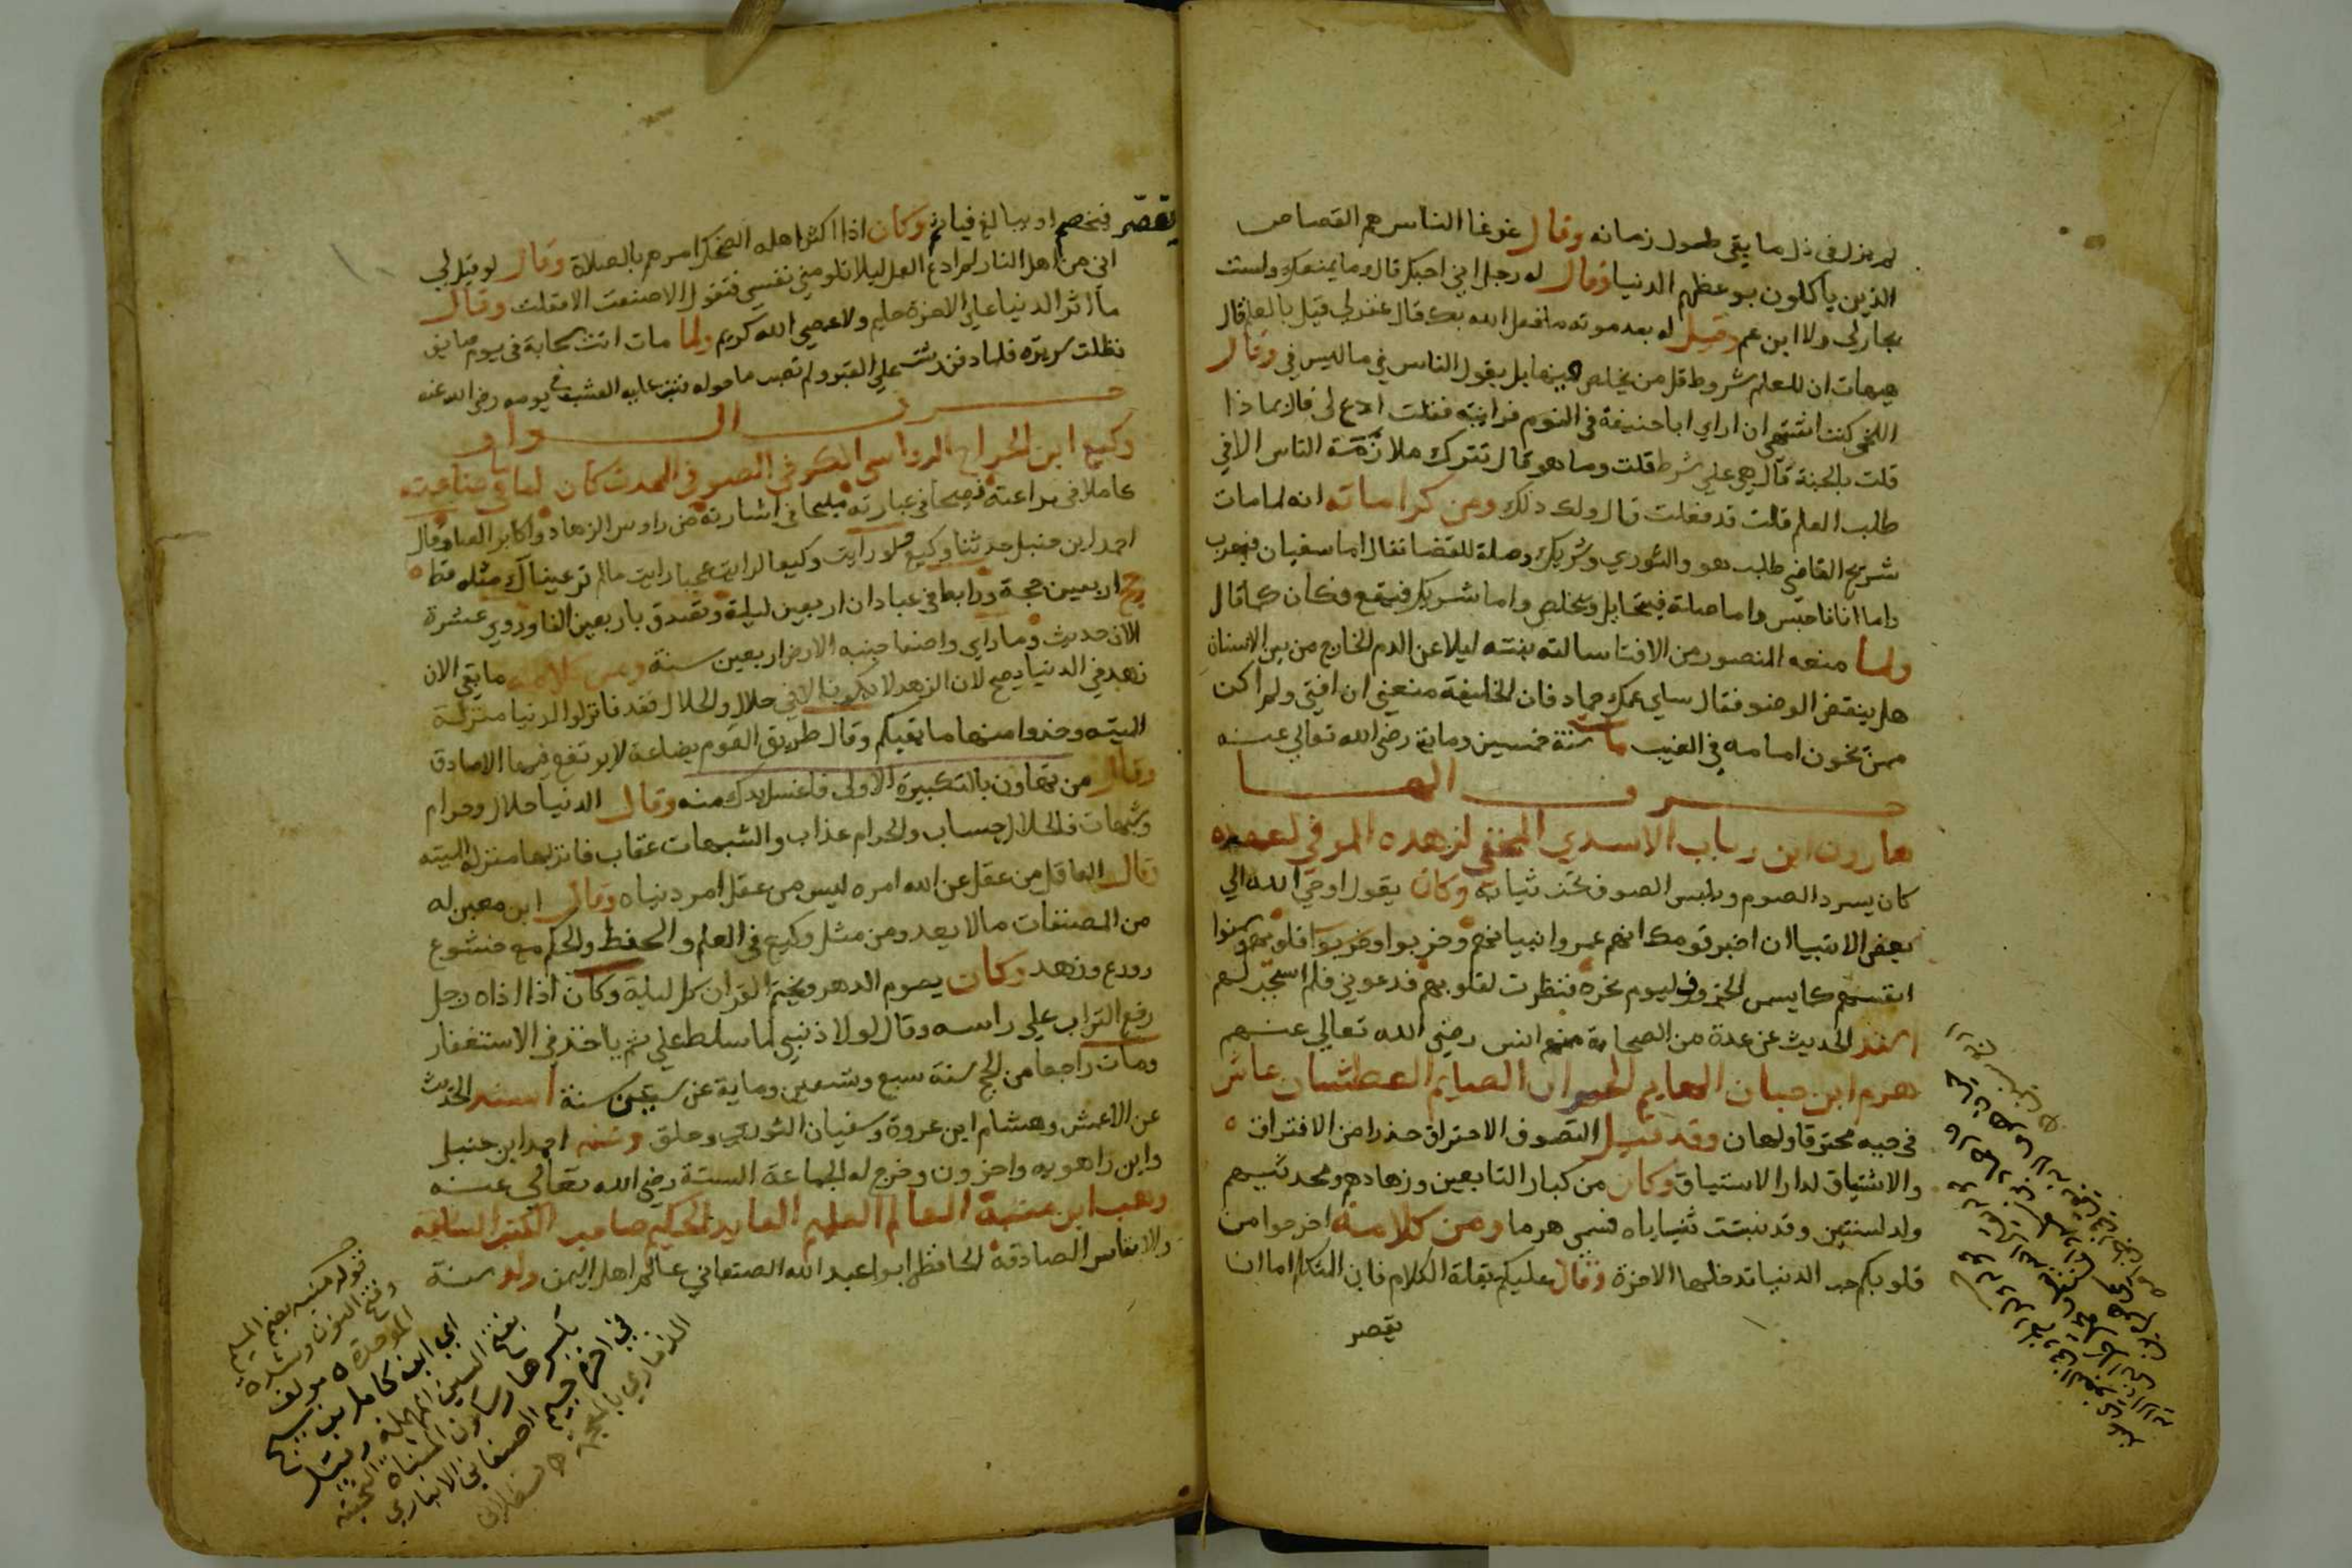 لم يزل في ذل ما بقي طول زمانه وقال غوغا الناس هم القصاص
الذين ياكلون بوعظهم الدنيا وقال له رجل اني احبك قال وما يمنعك ولست
بجار لي ولا ابن عم وقيل له بعد موته ما فعل الله بك قال غفر لي قيل بالعلم قال
هيهات ان للعلم شروط قل من يخلص بل بقول الناس في ما ليس في وقال
اللخمي كنت اشتهي ان اراي ابا حنيفة في النوم فرايته فقلت ادع لي قال بماذا
قلت بالجنة قال هي علي شرط قلت وما هو قال تترك ملازمة الناس الا في
طلب العلم قلت قد فعلت قال ولك ذلك ومن كراماته انه لما مات
شريح القاضي طلب هو والثوري وشريك وصلة للقضا فقال اما سفيان فيهرب
واما انا فاحبس واما صلة فيتحايل ويتخلص واما شريك فيقع فكان كما قال
ولما منعه المنصور من الافتا سالته بنته ليلا عن الدم الخارج من بين الاسنان
هل ينقض الوضو فقال سلي عمك حماد فان الخليفة منعني ان افتي ولم اكن
ممن يخون امامه في الغيب مات سنة خمسين وماية رضي الله تعالي عنه
حرف الها
هارون ابن رباب الاسدي المخفي لزهده الموفي لعهده
كان يسرد الصوم ويلبس الصوف تحت ثيابه وكان يقول اوحي الله الي
بعض الانبيا ان اخبر قومك انهم عمروا وخربوا قلوبهم
انفسهم كما يسمن الخروف ليوم نحره فنظرت لقلوبهم فدعوني فلم استجب لهم
اسند الحديث عن عدة من الصحابة منهم انس رضي الله تعالي عنهم
هرم ابن حبان الهايم الحيران الصايم العطشان عاش
في حبه محترقا ولهان وقد قيل التصوف الاحتراق حذرا من الافتراق
والاشتياق لدار الاستياق وكان من كبار التابعين وزهادهم ومحدثيهم
ولد لسنتين وقد نبتت ثناياه فسمي هرما ومن كلامه اخرجوا من
قلوبكم حب الدنيا تدخلها الاخرة وقال عليكم بقلة الكلام فان المتكلم اما ان
يقصر
يقصر فيخصم او يبالغ فياثم وكان اذا اكثر اهله الضحك امرهم بالصلاة وقال لو قيل لي
اني من اهل النار لم ادع العمل ليلا تلومني نفسي فتقول الا صنعت الا فعلت وقال
ما اثر الدنيا علي الاخرة حليم ولا عصي الله كريم ولما مات اتت سحابة في يوم صايف
فظلت سريره فلما دفن رشت علي القبر ولم تصب ما حوله فنبت عليه العشب في يومه رضي الله عنه
حرف الواو
وكيع ابن الجراح الرواسي الكوفي الصوفي المحدث كان
عاملا في براعته فصيحا في عبارته مليحا في اشارته من راوس الزهاد واكابر العباد وقال
احمد ابن حنبل حدثنا وكيع ولو رايت وكيعا لرايت عجبا رايت مالم تر عيناك مثله قط
حج اربعين حجة ورابط في عبادان اربعين ليلة وتصدق باربعين الفا وروي عشرة
الاف حديث وما راي واضعا جنبه الارض اربعين سنة ومن كلامه ما بقي الان
زهد في الدنيا يصح لان الزهد لا يكون الا في حلال والحلال فقد فانزلوا الدنيا منزلة
الميته وخذوا منها ما يقيكم وقال طريق القوم بضاعة لا يرتفع فيها الا صادق
وقال من تهاون بالتكبيرة الاولي فاغسل يدك منه وقال الدنيا حلال وحرام
وشبهات فالحلال حساب والحرام عذاب والشبهات عقاب فانزلها منزلة الميته
وقال العاقل من عقل عن الله امره ليس من عقل امر دنياه وقال ابن معين له
من المصنفات ما لا يعد ومن مثل وكيع في العلم والحفظ والحكم مع خشوع
وورع وزهد وكان يصوم الدهر ويختم القران كل ليلة وكان اذا اذاه رجل
رفع التراب علي راسه وقال لولا ذنبي لما سلط علي ثم ياخذ في الاستغفار
ومات راجعا من الحج سنة سبع وتسعين وماية عن سبعين سنة اسند الحديث
عن الاعمش وهشام ابن عروة وسفيان الثوري وخلق وعنه احمد ابن حنبل
وابن راهويه واخرون وخرج له الجماعة الستة رضي الله تعالي عنه
وهب ابن منبه العالم العليم العابد الحكيم صاحب الكتب السابقه
والانفاس الصادقة الحافظ ابو عبد الله الصنعاني عالم اهل اليمن ولد سنة
قوله منبه بضم الميم
وفتح النون وشده
الموحدة ه مولف
اي ابن كامل بن سيج
بفتح السين المهملة وقيل
بكسرها وسكون المثناه التحتيه
في اخره جيم الصنعاني الانباري
الذماري بالمعجمة ه قسطلاني